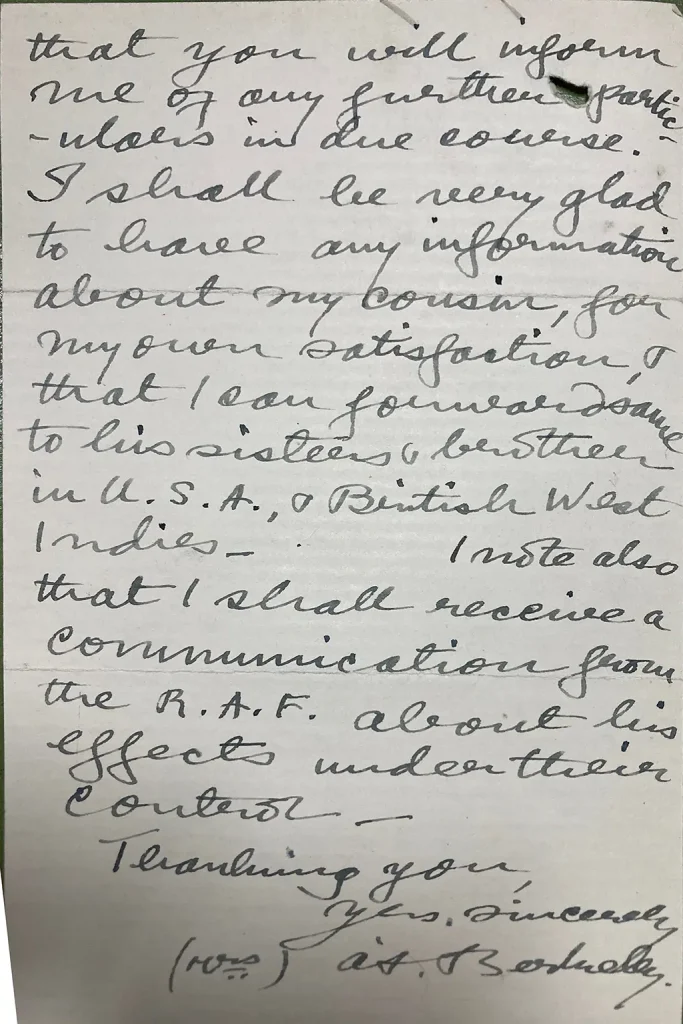 that you will inform
me of any further partic
-ulars in due course.
I shall be very glad
to have any information
about my cousin, for
my own satisfaction, &
that I can forward same
to his sisters & brother
in U.S.A., & British West
Indies _ I note also
that I shall receive a
communication from
the R.A.F. about his
effects under their
control _
Thanking you,
yrs. sincerely
(Mrs)